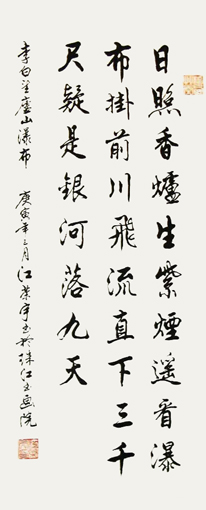 日照香爐生紫煙遥看瀑
布掛前川飛流直下三千
尺疑是銀河落九天
李白望廬山瀑布 庚寅年三月江榮宇书於珠江书画院